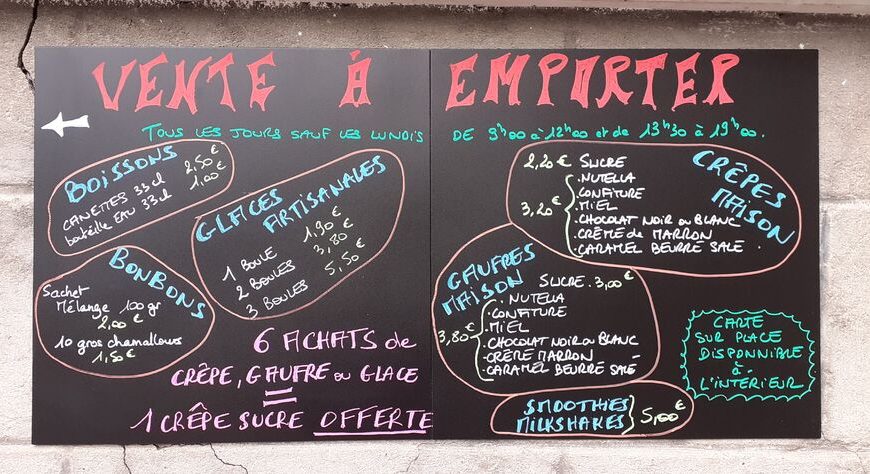 VENTE À EMPORTER
TOUS LES JOURS SAUF LES LUNDIS DE 9h00 à 12h00 et de 13h30 à 19h00.
BOISSONS
CANETTES 33cl 2,50€
bouteille EAU 33cl 1,00€
GLACES ARTISANALES
1 BOULE 1,90€
2 BOULES 3,80€
3 BOULES 5,50€
BONBONS
Sachet
Mélange 100gr
2,00€
10 gros chamallows
1,50€
6 ACHATS de
CRÊPE, GAUFRE ou GLACE
=
1 CRÊPE SUCRE OFFERTE
CRÊPES
MAISON
2,20€ SUCRE
3,20€
.NUTELLA
.CONFITURE
.MIEL
.CHOCOLAT NOIR ou BLANC
.CRÈME de MARRON
.CARAMEL BEURRE SALÉ.
GAUFRES
MAISON
SUCRE.3,00€
3,80€
.NUTELLA
.CONFITURE
.MIEL
.CHOCOLAT NOIR ou BLANC
.CRÈME MARRON
.CARAMEL BEURRE SALÉ
SMOOTHIES
MILKSHAKES
5,00€
CARTE
SUR PLACE
DISPONNIBLE
à
L'INTÉRIEUR